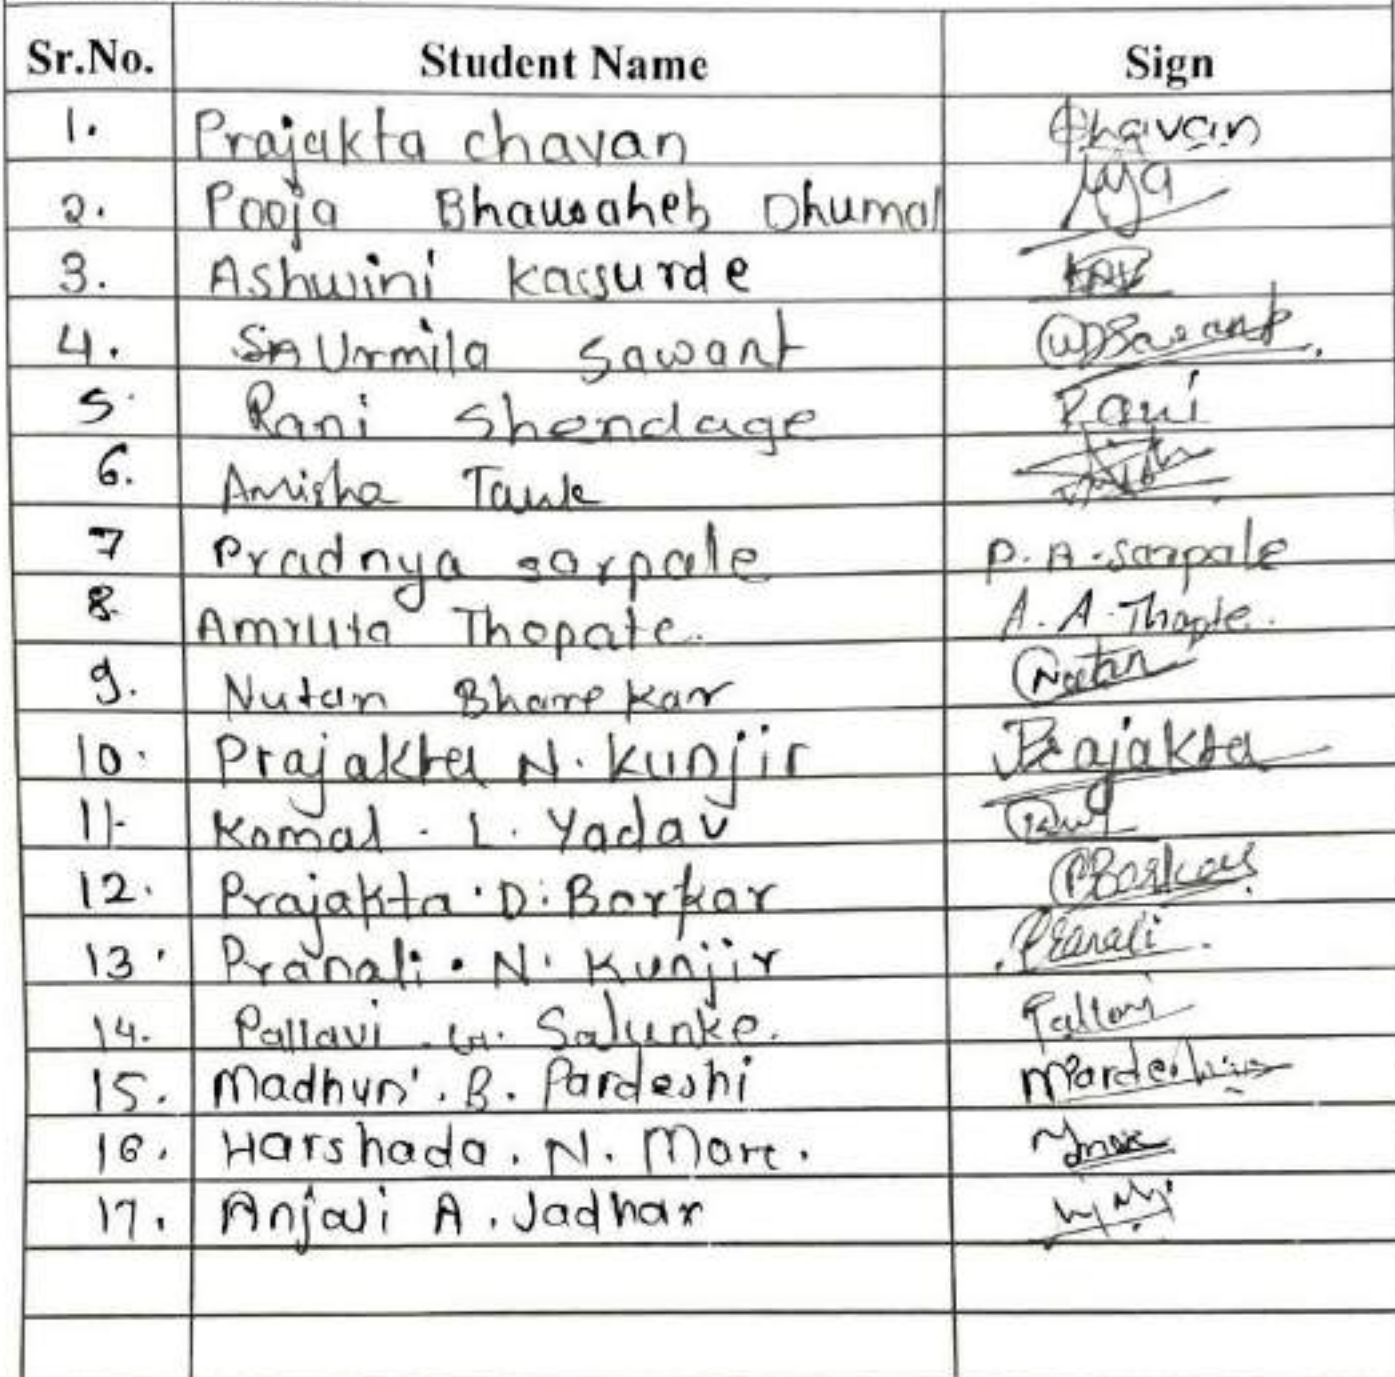 Sr.No. Student Name Sign
1. Prajakta chavan Chavan
2. Pooja Bhausaheb Dhumal
3. Ashwini Kasurde
4. Urmila Sawant Sawant
5. Rani Shendage Rani
6. Amisha Tank
7 Pradnya sarpale P. A. sarpale
8. Amruta Thopate. A. A. Thopte.
9. Nutan Bharekar Nutan
10. Prajakta N. Kunjir Prajakta
11. Komal . L. Yadav
12. Prajakta . D. Borkar PBorkar
13. Pranali . N. Kunjir Pranali .
14. Pallavi . G. Salunke. Pallavi
15. Madhuri . B. Pardeshi MPardeshi
16. Harshada . N. More.
17. Anjali A . Jadhav